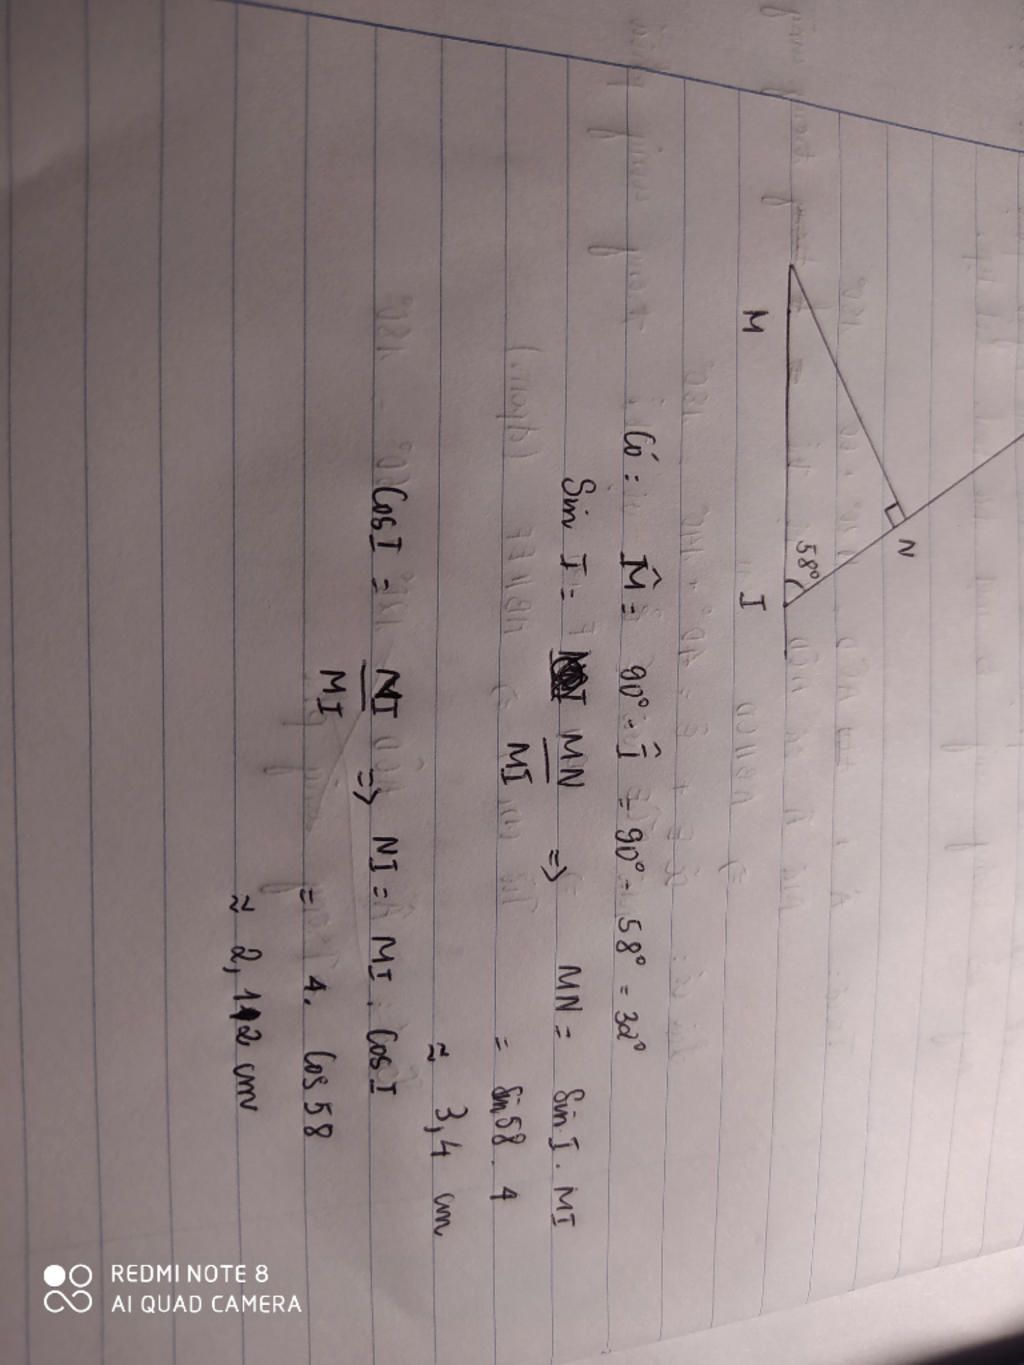 N
58°
M
I
Có: M̂ = 90° - Î = 90° - 58° = 32°
Sin I = MN/MI => MN = Sin I . MI
= Sin 58 . 4
≈ 3,4 cm
Cos I = NI/MI => NI = MI . Cos I
= 4. Cos 58
≈ 2,12 cm
REDMI NOTE 8
AI QUAD CAMERA